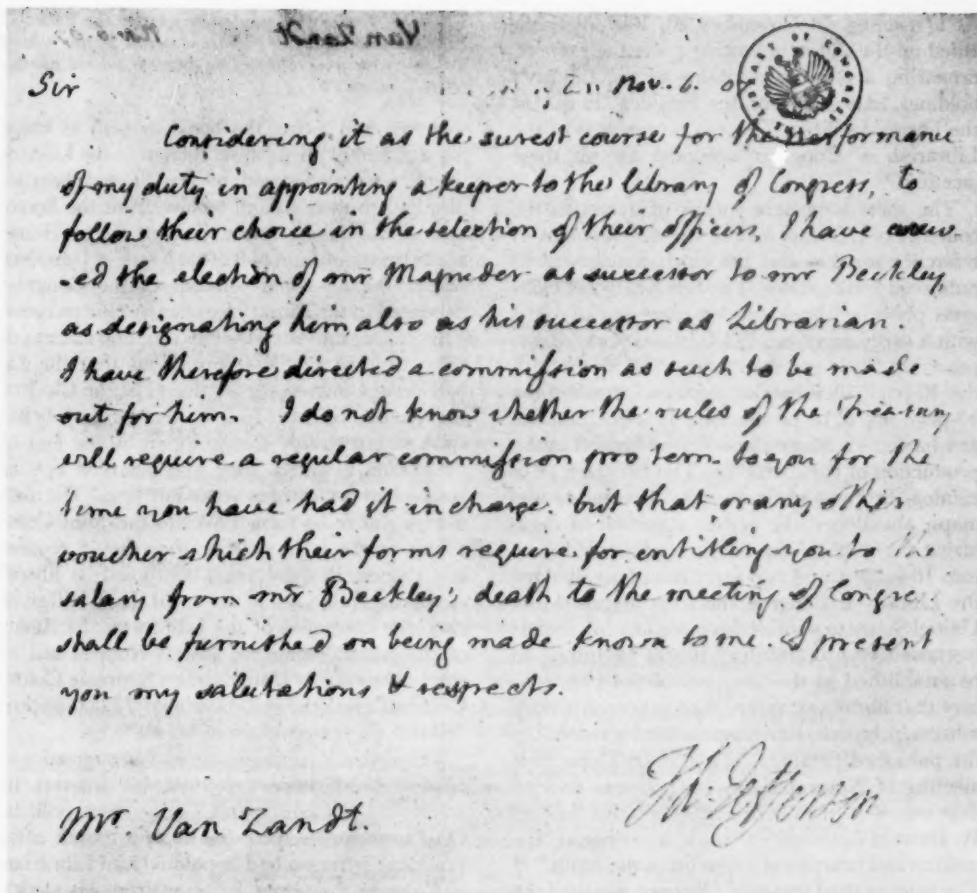 Van Zandt Nov. 6. 07.
LIBRARY OF CONGRESS
Sir Nov. 6. 07
Considering it as the surest course for the performance
of my duty in appointing a keeper to the library of Congress, to
follow their choice in the selection of their officers, I have
ed the election of mr Magruder as successor to mr Beckley
as designating him also as his successor as Librarian.
I have therefore directed a commission as such to be made
out for him. I do not know whether the rules of the treasury
will require a regular commission pro tem. to you for the
time you have had it in charge. but that or any other
voucher which their forms require for entitling you to the
salary from mr Beckley's death to the meeting of Congre
shall be furnished on being made known to me. I present
you my salutations & respects.
Th: Jefferson
Mr. Van Zandt.